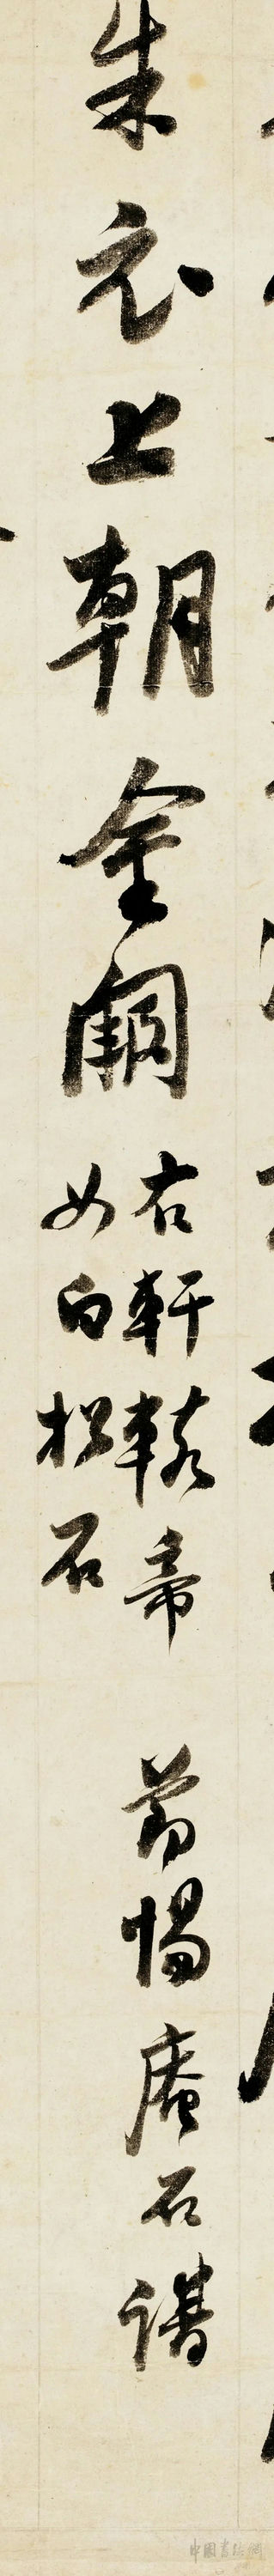 朱衣上朝金阙
右轩辕帝 前惕庵石谱
女白松石
中国书法网